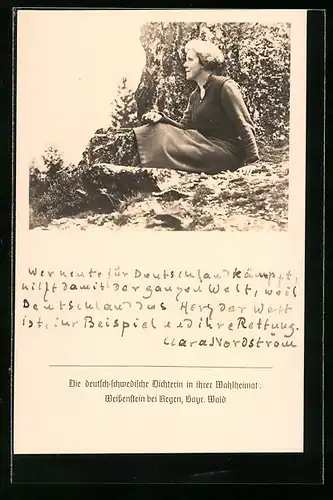 Wer heute für Deutschland kämpft,
hilft damit der ganzen Welt, weil
Deutschland das Herz der Welt
ist, ihr Beispiel und ihre Rettung.
Clara Nordström
Die deutsch-schwedische Dichterin in ihrer Wahlheimat:
Weißenstein bei Regen, Bayr. Wald